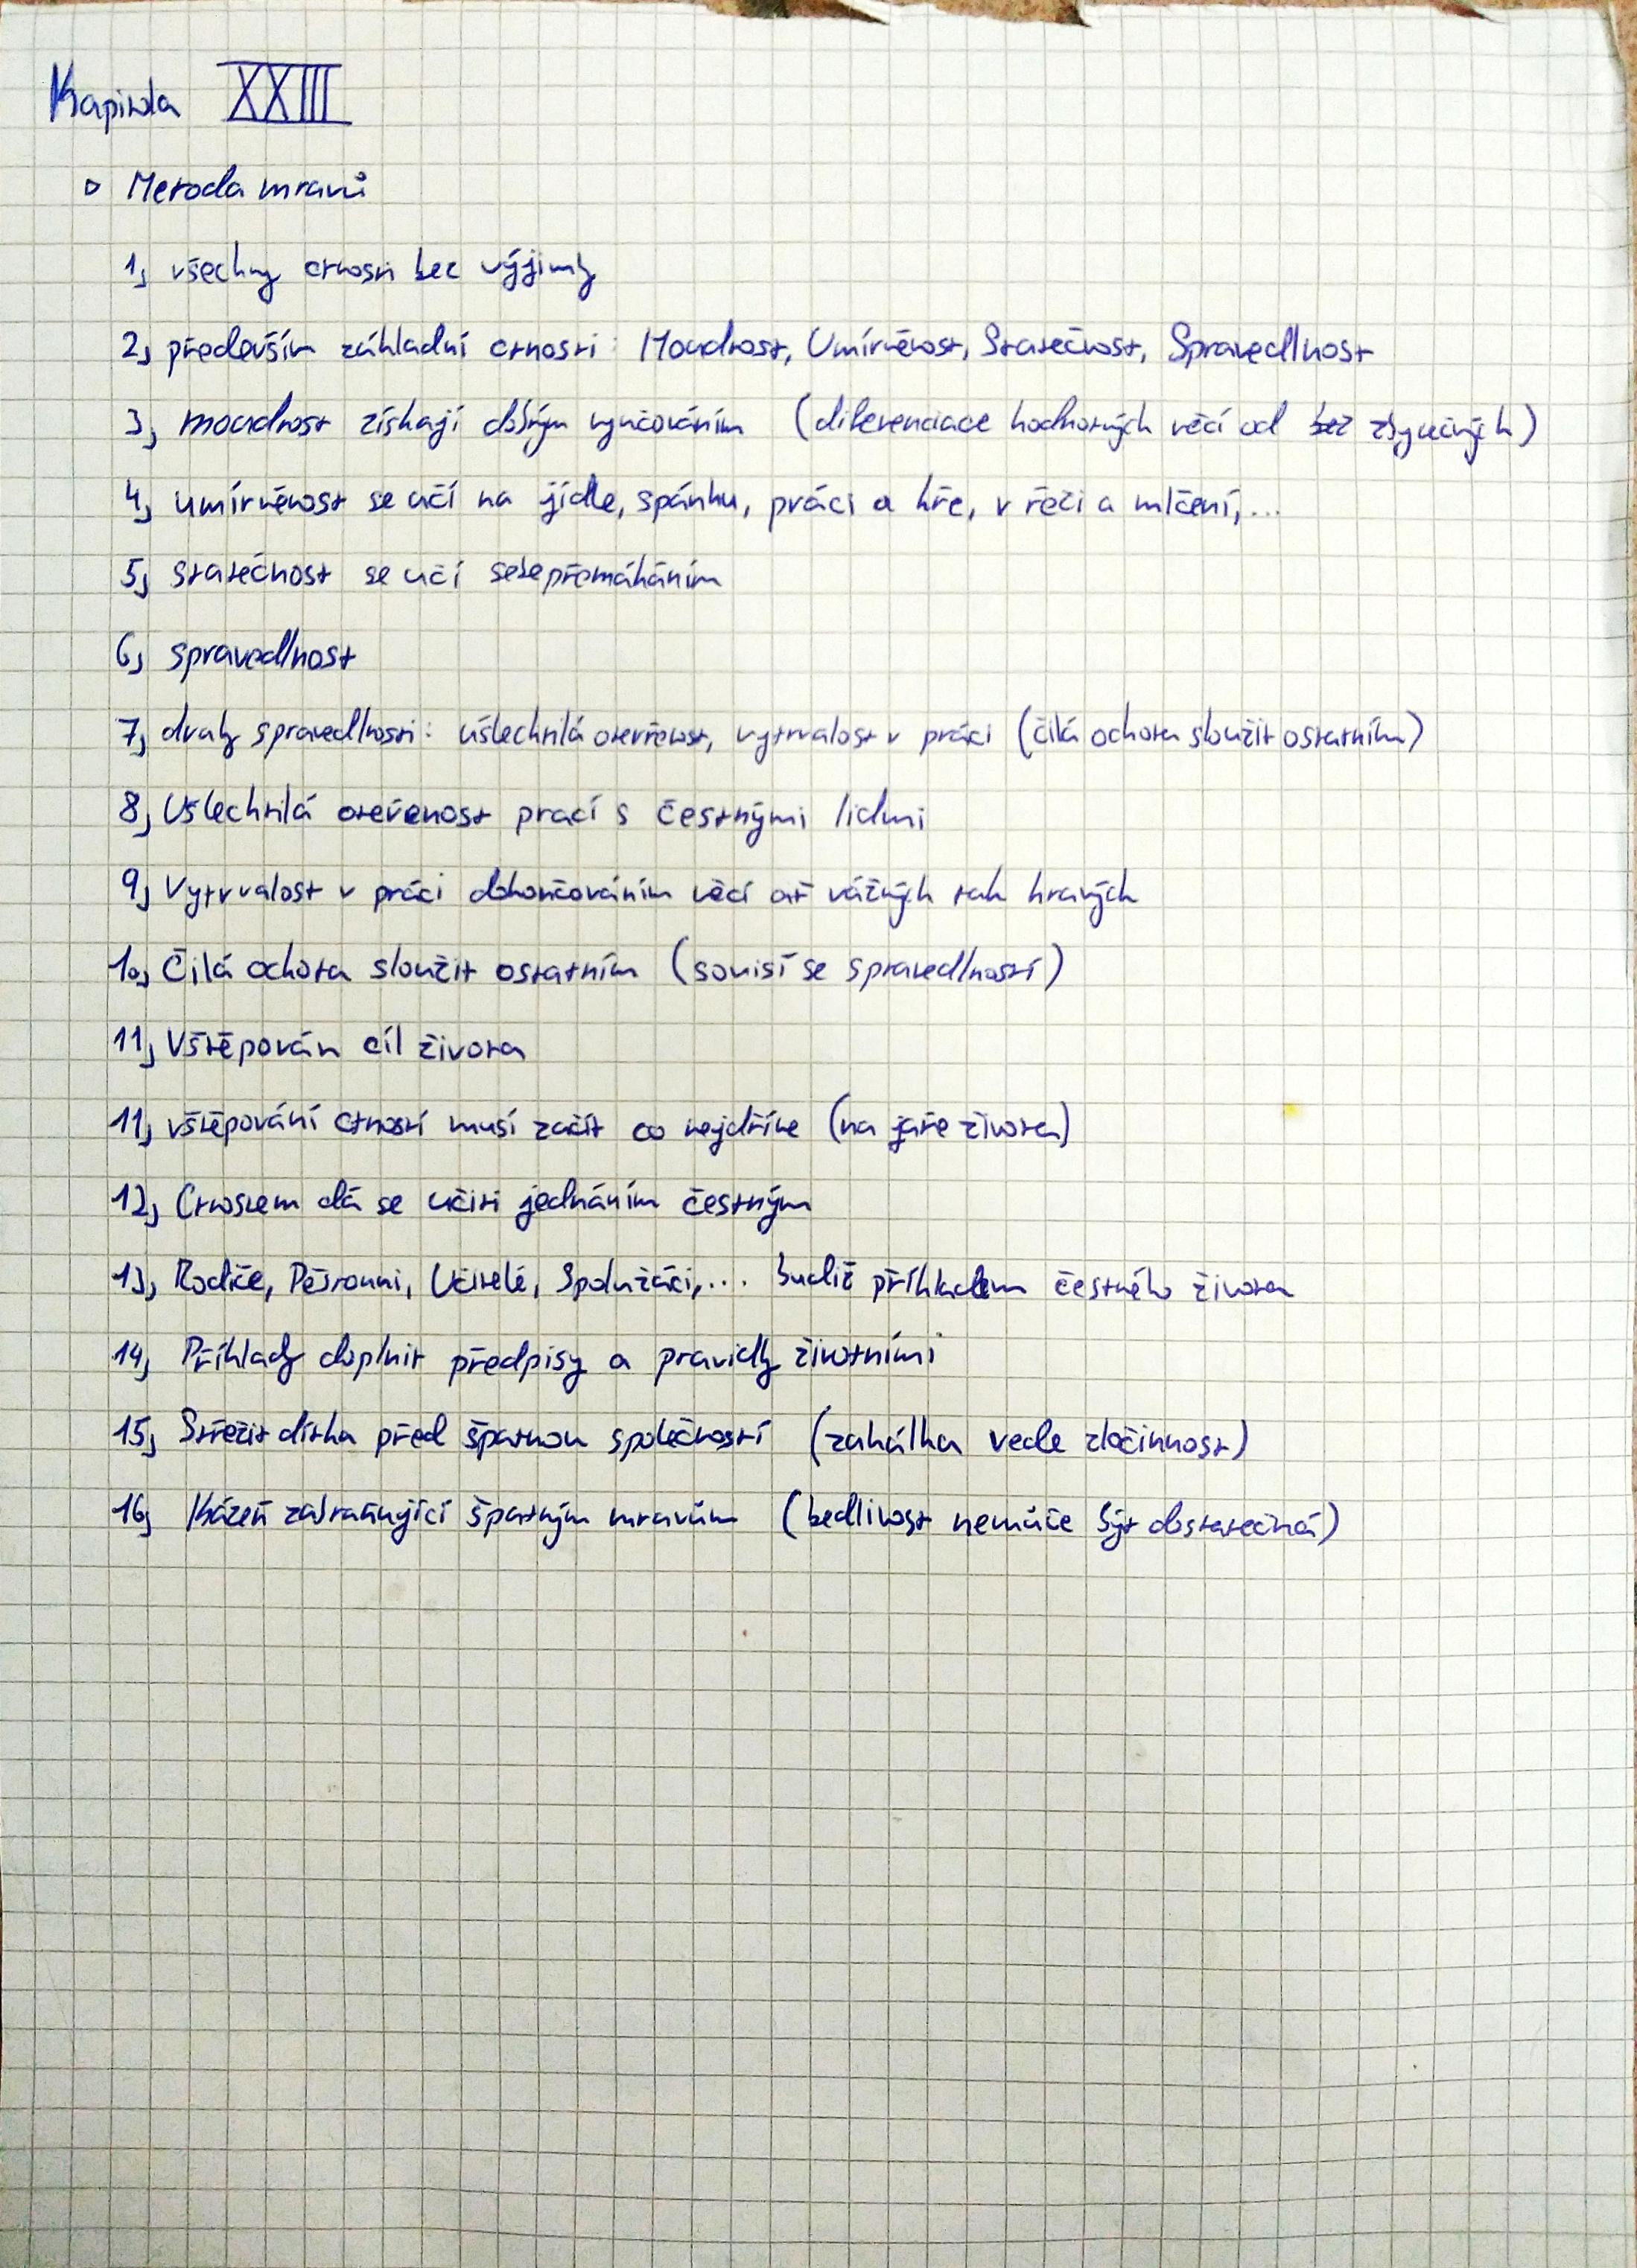 Kapitola XXIII
▫ Metoda mravů
1, všechny ctnosti bez výjimky
2, především základní ctnosti: Moudrost, Umírněnost, Statečnost, Spravedlnost
3, moudrost získají dobrým vyučováním (diferenciace hodnotných věcí od bez zbytečných)
4, umírněnost se učí na jídle, spánku, práci a hře, v řeči a mlčení,...
5, statečnost se učí sebepřemáháním
6, spravedlnost
7, druhy spravedlnosti: ušlechtilá otevřenost, vytrvalost v práci (čilá ochota sloužit ostatním)
8, Ušlechtilá otevřenost prací s čestnými lidmi
9, Vytrvalost v práci dokončováním věcí ať vážných tak hravých
10, Čilá ochota sloužit ostatním (souvisí se spravedlností)
11, Vštěpován cíl života
11, vštěpování ctností musí začít co nejdříve (na jaře života)
12, Ctnostem dá se učiti jednáním čestným
13, Rodiče, Pěstouni, Učitelé, Spolužáci,... budiž příkladem čestného života
14, Příklady doplnit předpisy a pravidly životními
15, Střežit dítka před špatnou společností (zahálka vede zločinnost)
16, Kázeň zabraňující špatným mravům (bedlivost nemůže být dostatečná)